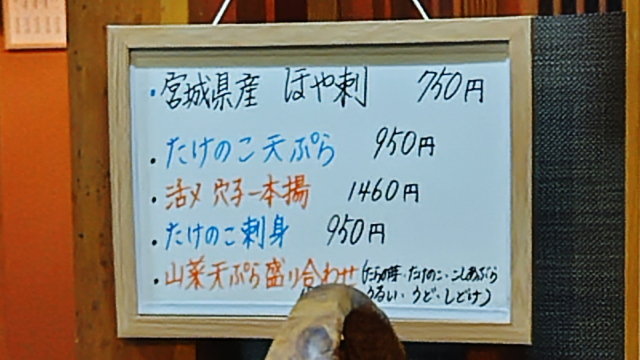 ・宮城県産 ほや刺 750円
・たけのこ天ぷら 950円
・活〆穴子一本揚 1460円
・たけのこ刺身 950円
・山菜天ぷら盛り合わせ(たらの芽・たけのこ・こしあぶら
うるい・うど・しどけ)